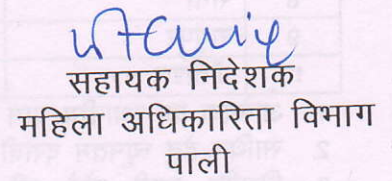 सहायक निदेशक
महिला अधिकारिता विभाग
पाली